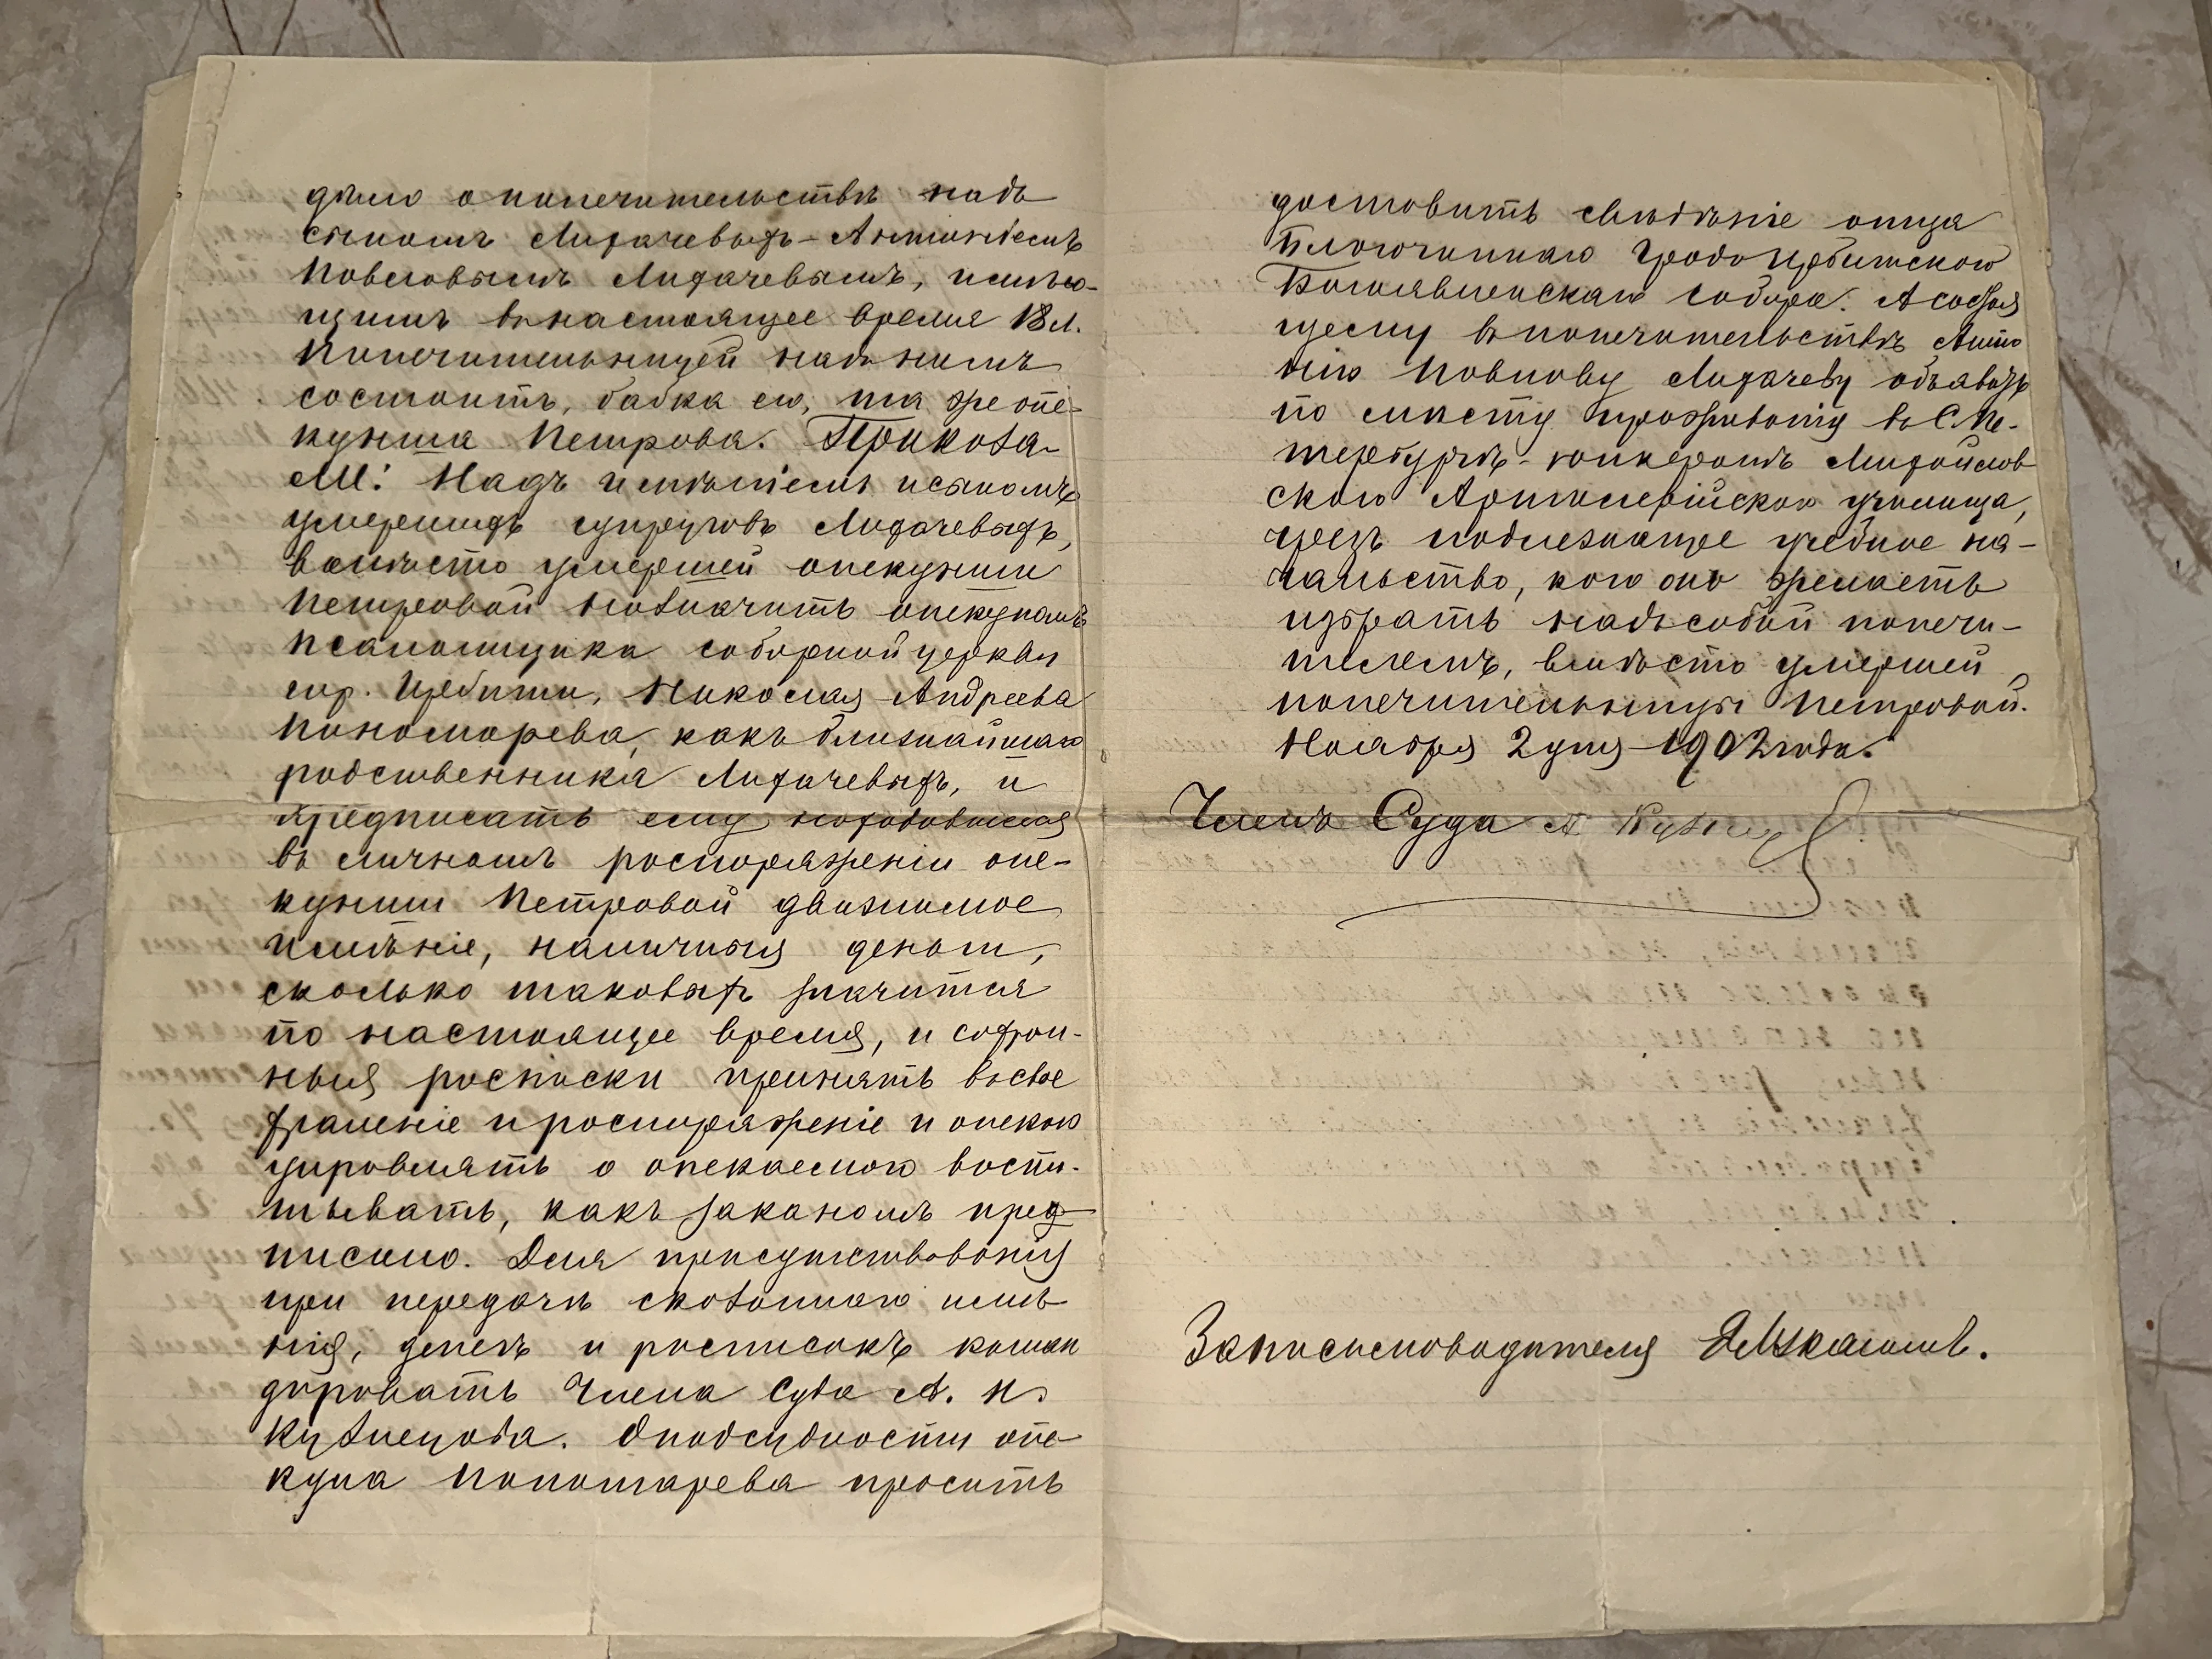 дѣло о попечительствѣ надъ
сыномъ Лихачевыхъ - Антоніемъ
Павловымъ Лихачевымъ, имѣю-
щимъ въ настоящее время 18 л.
Попечительницей надъ нимъ
состоитъ, бабка его, та же опе-
кунша Петрова. Приказа-
ли: Надъ имѣніемъ и сыномъ
умершихъ супруговъ Лихачевыхъ,
вмѣсто умершей опекунши
Петровой назначить опекуномъ
псаломщика соборной церкви
гор. Ирбити, Николая Андреева
Пономарева, какъ ближайшаго
родственника Лихачевыхъ, и
предписать ему находившееся
въ личномъ распоряженіи опе-
кунши Петровой движимое
имѣніе, наличныя деньги,
сколько таковыхъ значится
по настоящее время, и сохран-
ныя росписки принять въ свое
храненіе и распоряженіе и опекою
управлять а опекаемаго воспи-
тывать, какъ закономъ пред-
писано. Для присутствованія
при передачѣ сказаннаго имѣ
нія, денегъ и росписокъ коман
дировать Члена Суда А. Н.
Кузнецова. О подсудности опе
куна Пономарева просить
доставить свѣдѣніе отца
Благочиннаго Градо Ирбитскаго
Богоявленскаго собора. А состоя
щему въ попечительствѣ Анто
нію Павлову Лихачеву объявить
по мѣсту проживанія въ С.Пе-
тербургѣ - юнкеромъ Михайлов
скаго Артиллерійскаго училища,
чрезъ подлежащее учебное на-
чальство, кого онъ желаетъ
избрать надъ собой попечи-
телемъ, вмѣсто умершей
попечительницы Петровой.
Ноября 2 дня 1902 года.
Членъ Суда А Кузнец
За письмоводителя